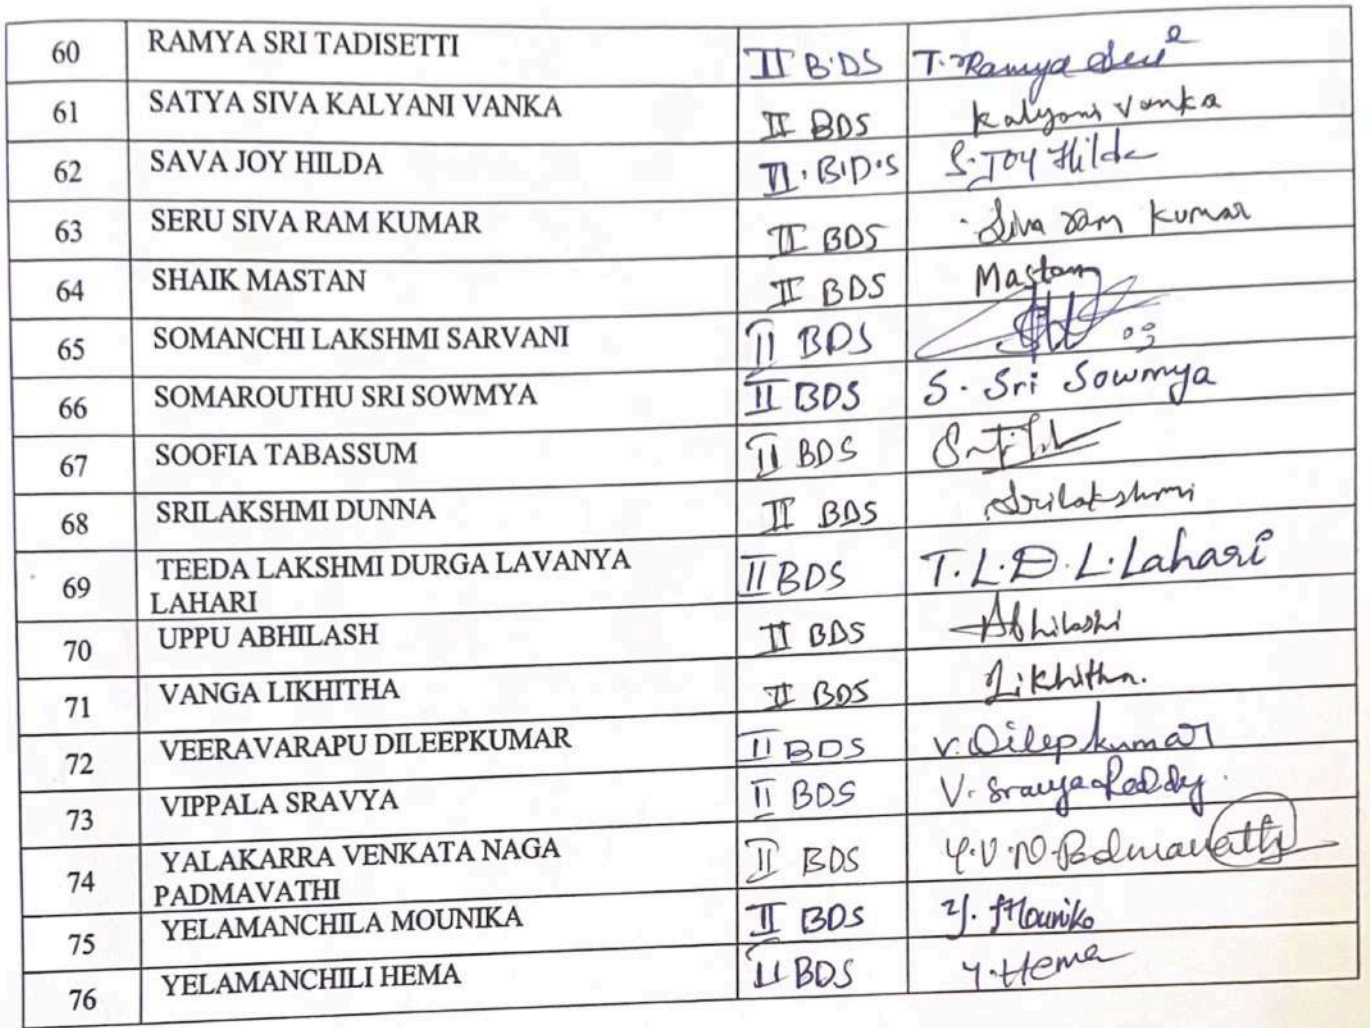 60 RAMYA SRI TADISETTI II B.DS T. Ramya Sri
61 SATYA SIVA KALYANI VANKA II BDS Kalyani Vanka
62 SAVA JOY HILDA II.B.D.S S. Joy Hilda
63 SERU SIVA RAM KUMAR II BDS Siva ram kumar
64 SHAIK MASTAN II BDS Mastan
65 SOMANCHI LAKSHMI SARVANI II BDS
66 SOMAROUTHU SRI SOWMYA II BDS S. Sri Sowmya
67 SOOFIA TABASSUM II BDS
68 SRILAKSHMI DUNNA II BDS Srilakshmi
69 TEEDA LAKSHMI DURGA LAVANYA II BDS T.L.D.L.Lahari
LAHARI
70 UPPU ABHILASH II BDS Abhilash
71 VANGA LIKHITHA II BDS Likhitha.
72 VEERAVARAPU DILEEPKUMAR II BDS V. Dilepkumar
73 VIPPALA SRAVYA II BDS V. Sravya Reddy.
74 YALAKARRA VENKATA NAGA II BDS Y.V.N.Padmavathi
PADMAVATHI
75 YELAMANCHILA MOUNIKA II BDS Y. Mounika
76 YELAMANCHILI HEMA II BDS Y. Hema